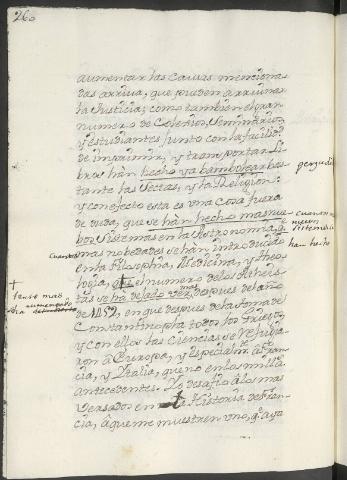 260
aumentar las causas menciona-
das arriva, que pueden arruinar
la Justicia; como tambien el gran
numero de Colegios, Seminarios,
y estudiantes junto con la facilidad
de imprimir, y transportar li-
bros han hecho ya bambolear bas-
tante las Sectas, y la Religion:
y con efecto esta es una cosa fuera
de duda, que se han hecho mas nue-
bos Sistemas en la Astronomia, q.e
mas nobedades se han introducido
en la Filosophia, Medicina, y Theo-
logia, el numero de los Atheis-
tas se ha dejado ver mas despues del año
de 1452, en que despues de la toma de
Constantinopla todos los Griegos,
y con ellos las Ciencias se retira-
ron à Europa, y especialm.te à Fran-
cia, y Italia, que no en los mill a.s
antecedentes. Yo desafio à los mas
versados en la Historia de Fran-
cia, à que me muestren uno, q.e aya
nuevos
Sistemas
han hecho
Cuentos
tanto mas